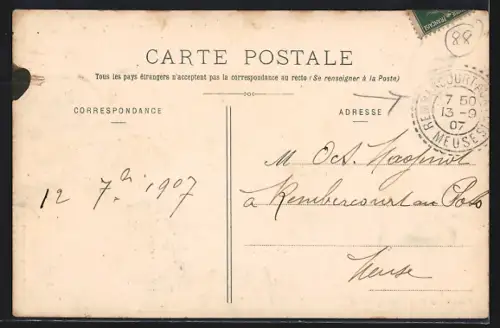 88
CARTE POSTALE
Tous les pays étrangers n'acceptent pas la correspondance au recto (Se renseigner à la Poste)
CORRESPONDANCE
ADRESSE
7 50
13 - 9
07
MEUSE
12 7bre 1907
M Oct.
à Rembercourt au Pots
Meuse